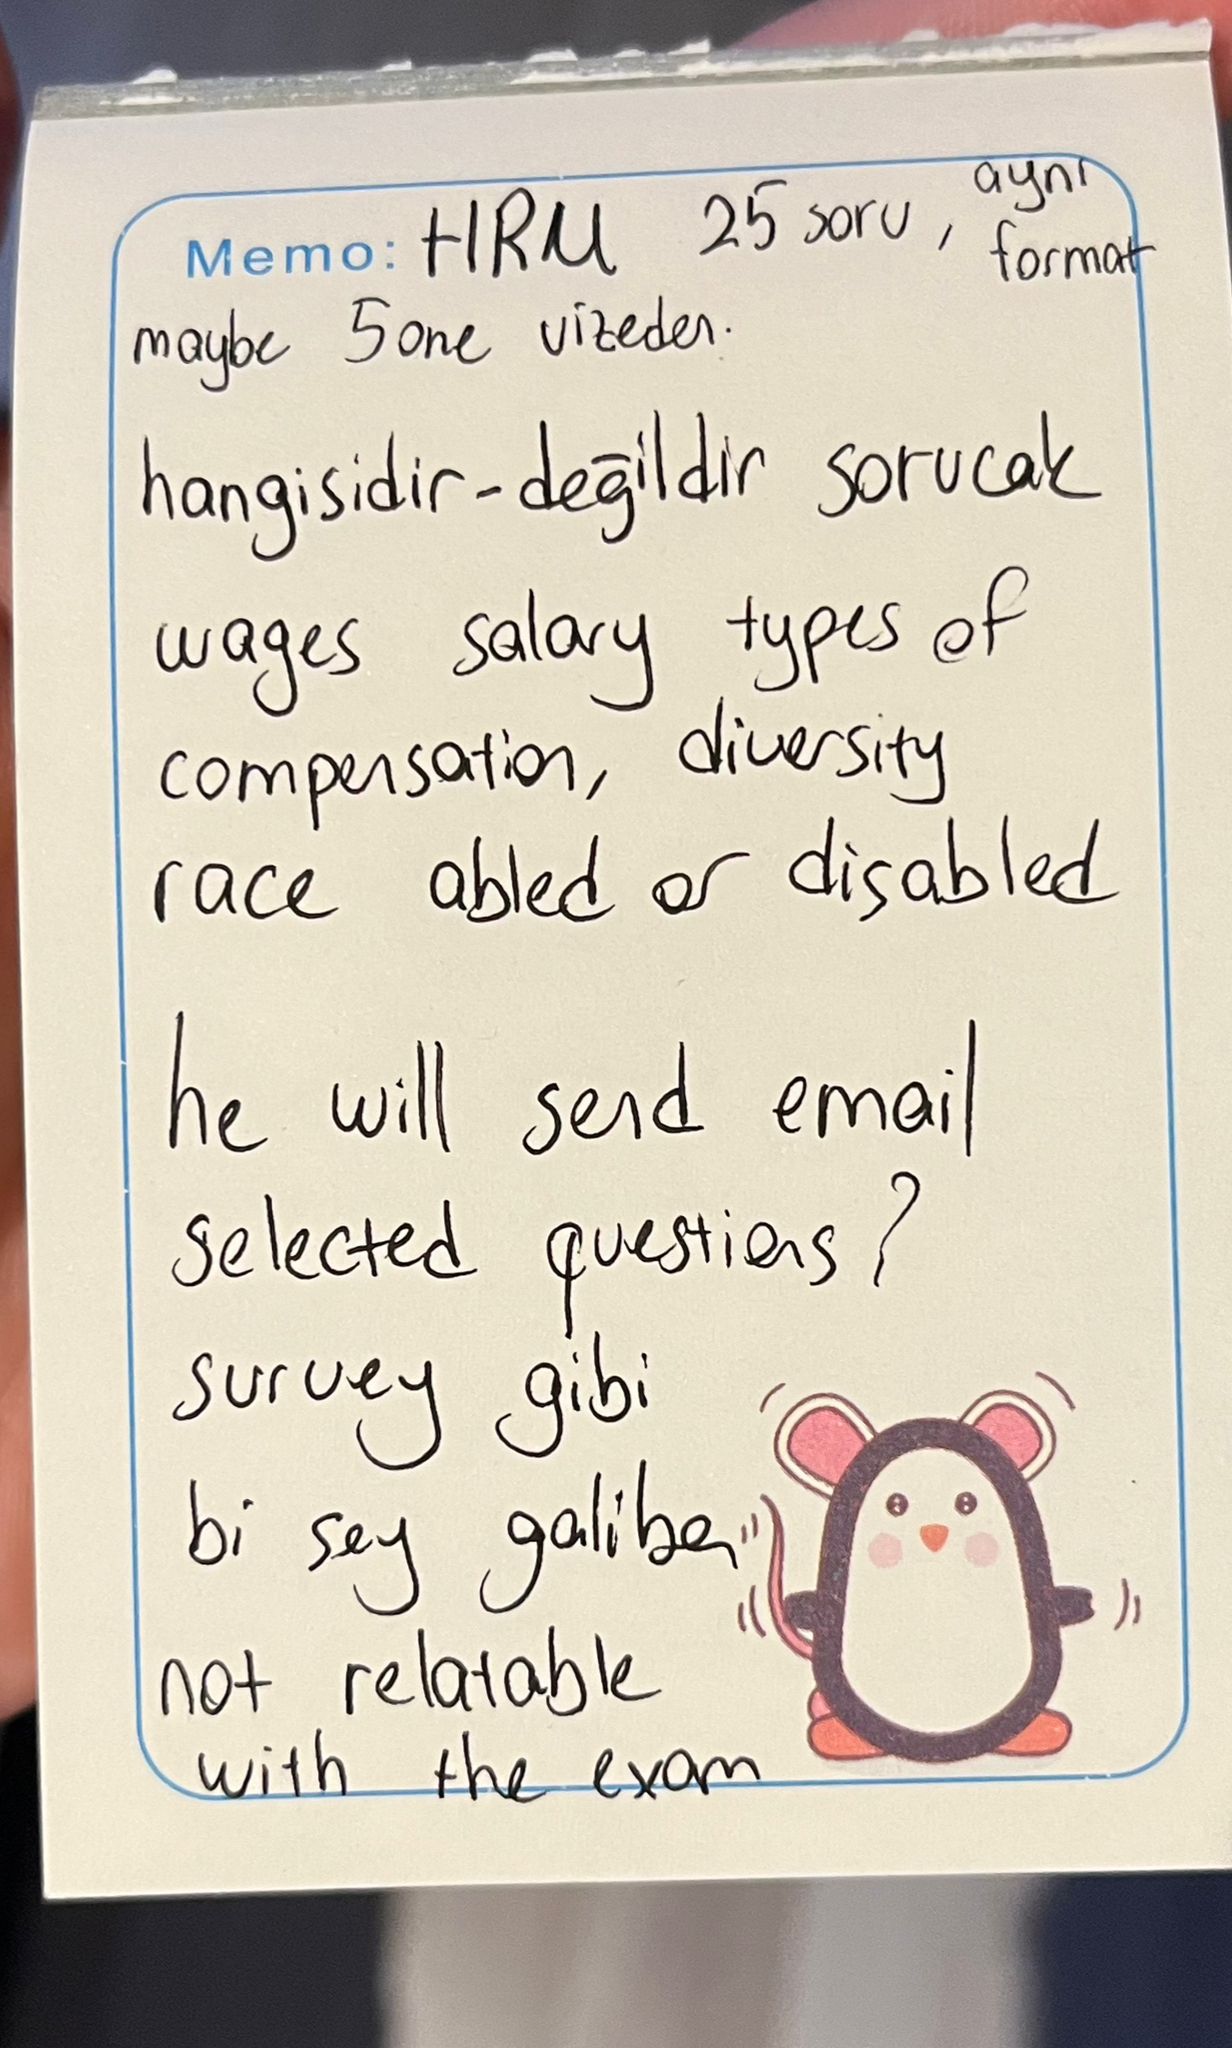 Memo: HRM 25 soru, aynı format
maybe 5 one vizeden.
hangisidir-değildir sorucak
wages salary types of
compensation, diversity
race abled or disabled
he will send email
selected questions?
survey gibi
bi sey galiba
not relatable
with the exam